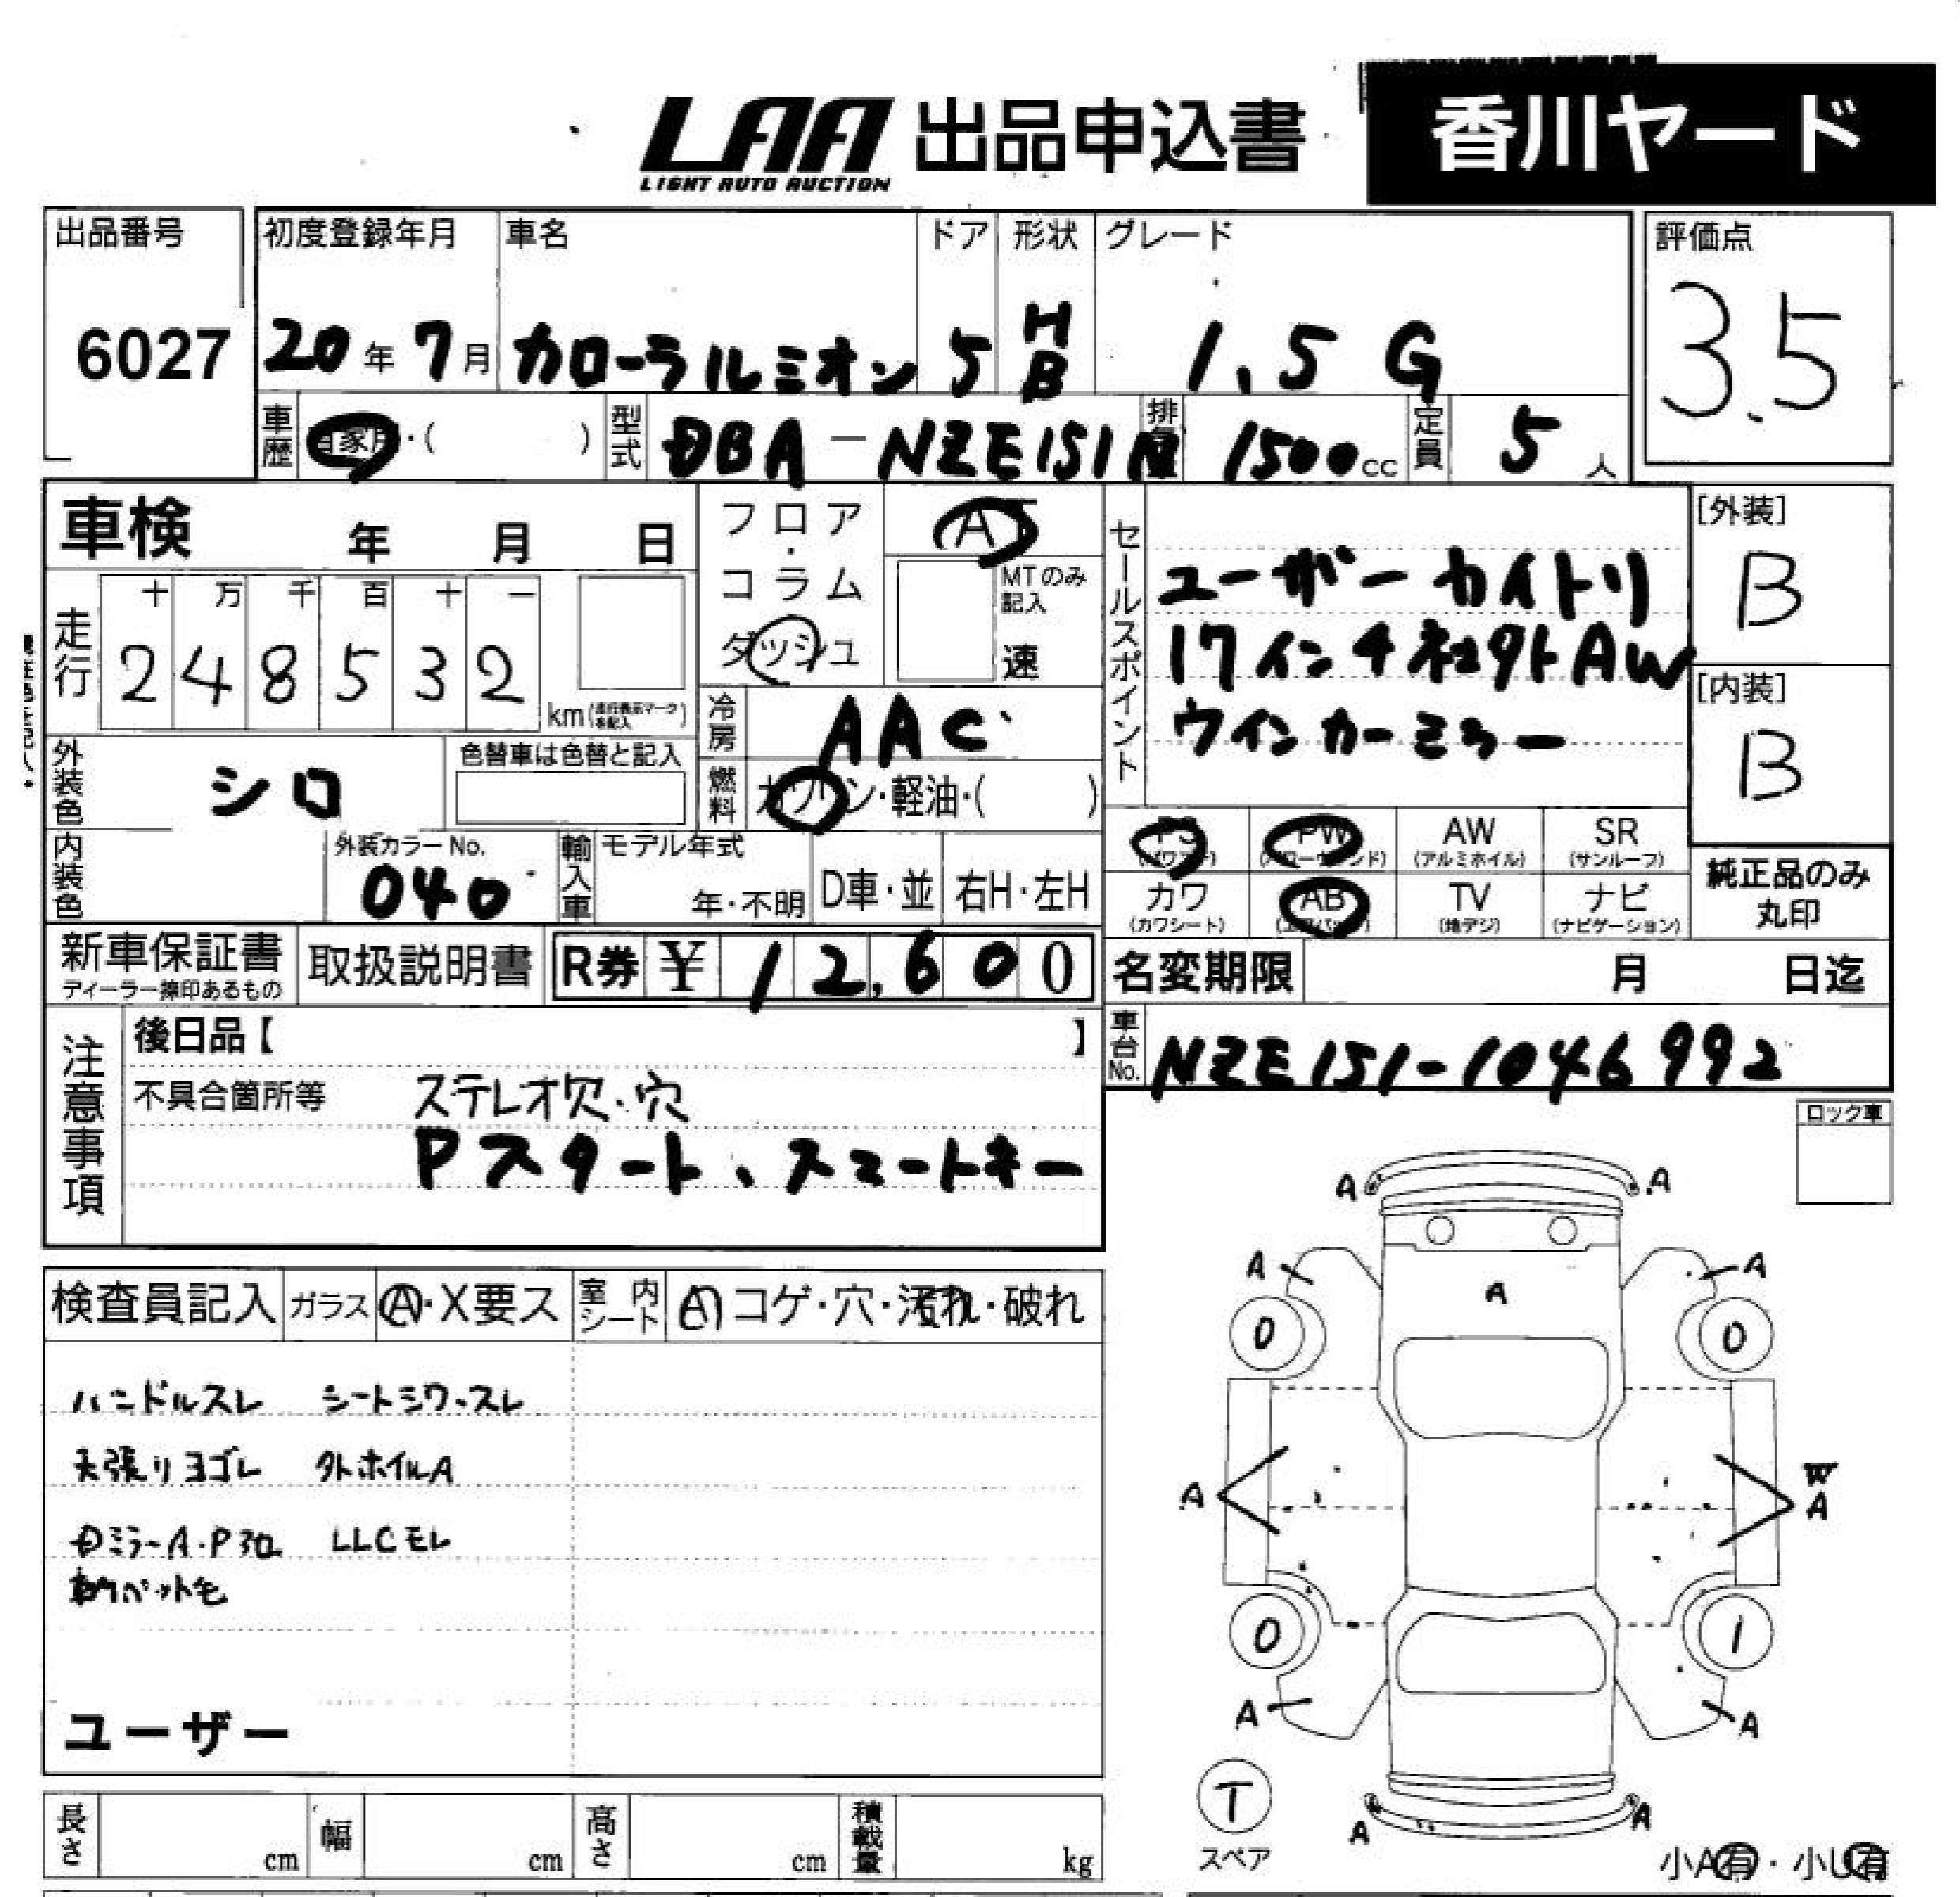 LAA 出品申込書 香川ヤード
LIGHT AUTO AUCTION
出品番号 初度登録年月 車名 ドア 形状 グレード 評価点
6027 20年 7月 カローラルミオン 5 HB 1.5 G 3.5
車歴 自家用・( ) 型式 DBA-NZE151N 排気量 1500cc 定員 5人
車検 年 月 日
フロア・コラム
ダッシュ
AT
MTのみ記入
速
走行 十 万 千 百 十 一
2 4 8 5 3 2
km(走行表示マークを記入)
冷房 AAC
燃料 ガソリン・軽油・( )
外装色 シロ 色替車は色替と記入
内装色 外装カラーNo. 040
輸入車 モデル年式 年・不明 D車・並 右H・左H
セールスポイント
ユーザーカイトリ
17インチ社外AW
ウインカーミラー
[外装]
B
[内装]
B
PS PW AW SR
(パワステ) (パワーウィンド) (アルミホイル) (サンルーフ)
カワ AB TV ナビ
(カワシート) (エアバック) (地デジ) (ナビゲーション)
純正品のみ
丸印
新車保証書 取扱説明書 R券 ¥ 12,600
ディーラー捺印あるもの
名変期限 月 日迄
車台No. NZE151-1046992
注意事項
後日品【 】
不具合箇所等 ステレオ欠・穴
Pスタート、スマートキー
ロック車
検査員記入 ガラス A・X要ス 室内シート コゲ・穴・汚れ・破れ
ハンドルスレ シートシワ・スレ
天張りヨゴレ 外ホイルA
ミラーA・P LLCモレ
ペット毛
ユーザー
A A
A A
A
0 0
A W
A
0 1
A A
T
スペア
A A
小A有・小U有
長さ cm 幅 cm 高さ cm 積載量 kg